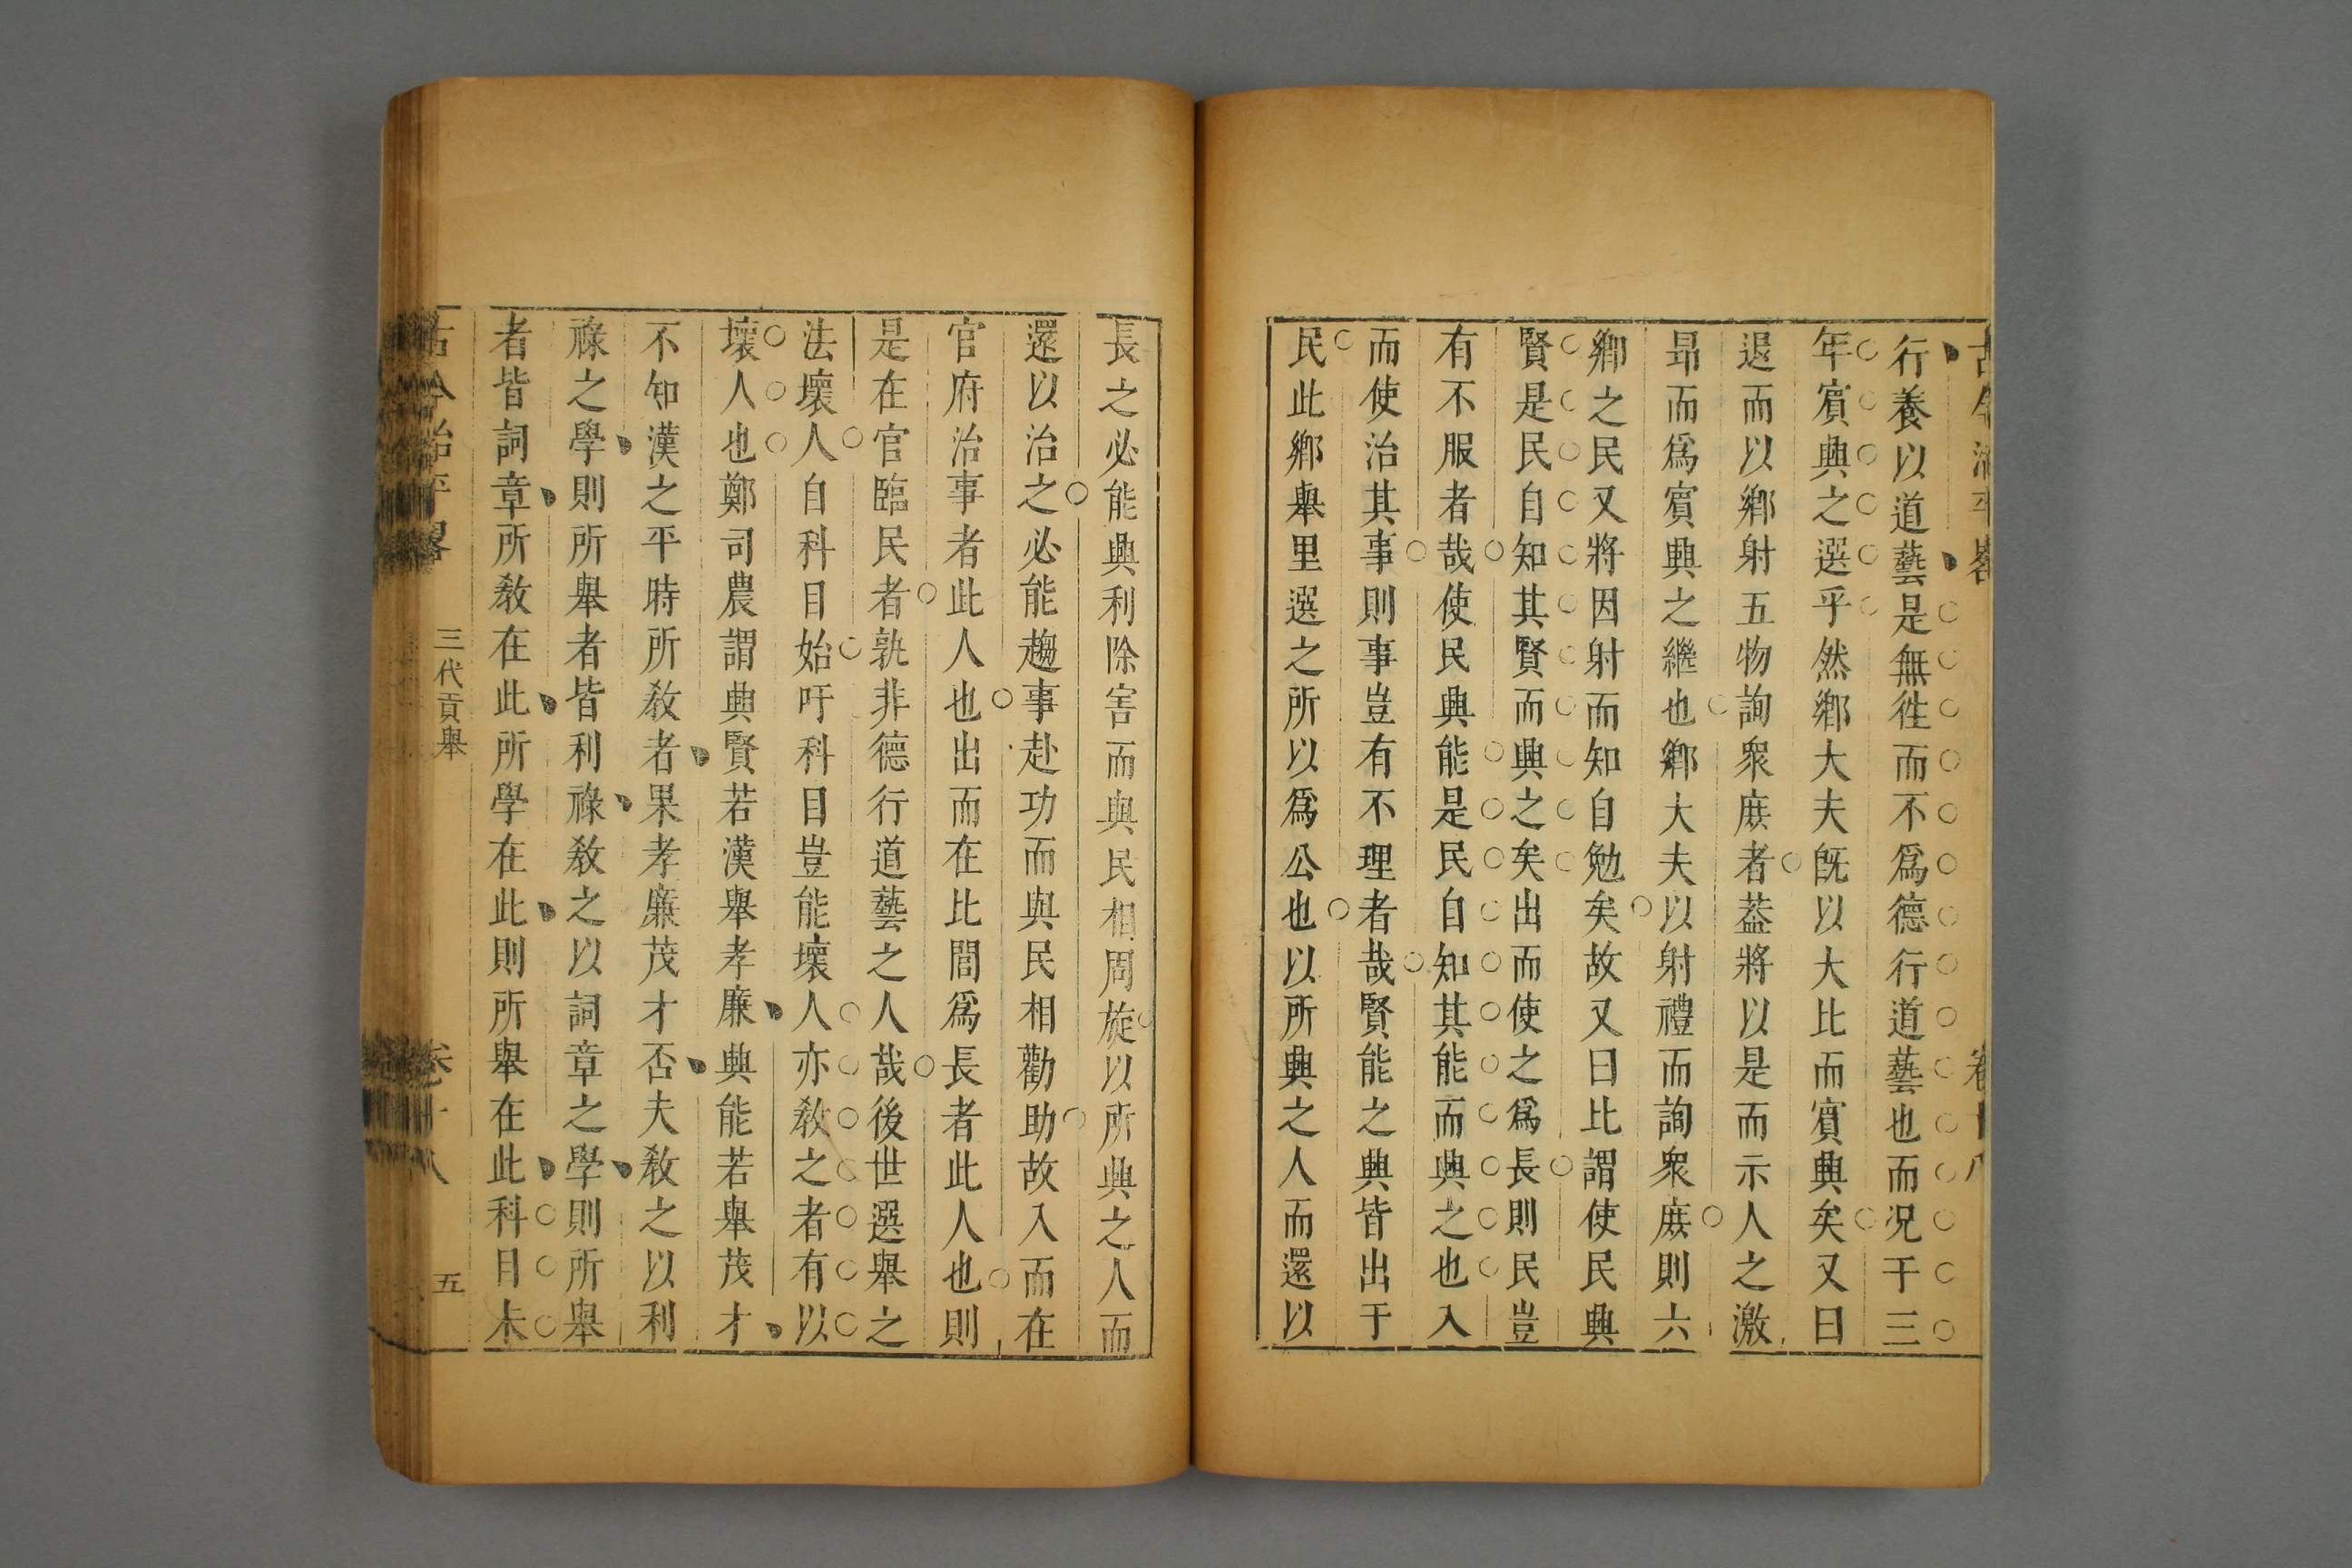 古今治平畧 卷十八
行養以道藝是無徃而不爲德行道藝也而况于三
年賓興之選乎然鄉大夫旣以大比而賓興矣又曰
退而以鄉射五物詢衆庻者葢將以是而示人之激
昻而爲賓興之繼也鄉大夫以射禮而詢衆庻則六
鄉之民又將因射而知自勉矣故又曰比謂使民興
賢是民自知其賢而興之矣出而使之爲長則民豈
有不服者哉使民興能是民自知其能而興之也入
而使治其事則事豈有不理者哉賢能之興皆出于
民此鄉舉里選之所以爲公也以所興之人而還以
長之必能興利除害而與民相周旋以所興之人而
還以治之必能趨事赴功而與民相勸助故入而在
官府治事者此人也出而在比閭爲長者此人也則
是在官臨民者孰非德行道藝之人哉後世選舉之
法壞人自科目始吁科目豈能壞人亦教之者有以
壞人也鄭司農謂興賢若漢舉孝廉興能若舉茂才
不知漢之平時所教者果孝廉茂才否夫教之以利
祿之學則所舉者皆利祿教之以詞章之學則所舉
者皆詞章所教在此所學在此則所舉在此科目未
古今治平畧 三代貢舉 卷十八 五